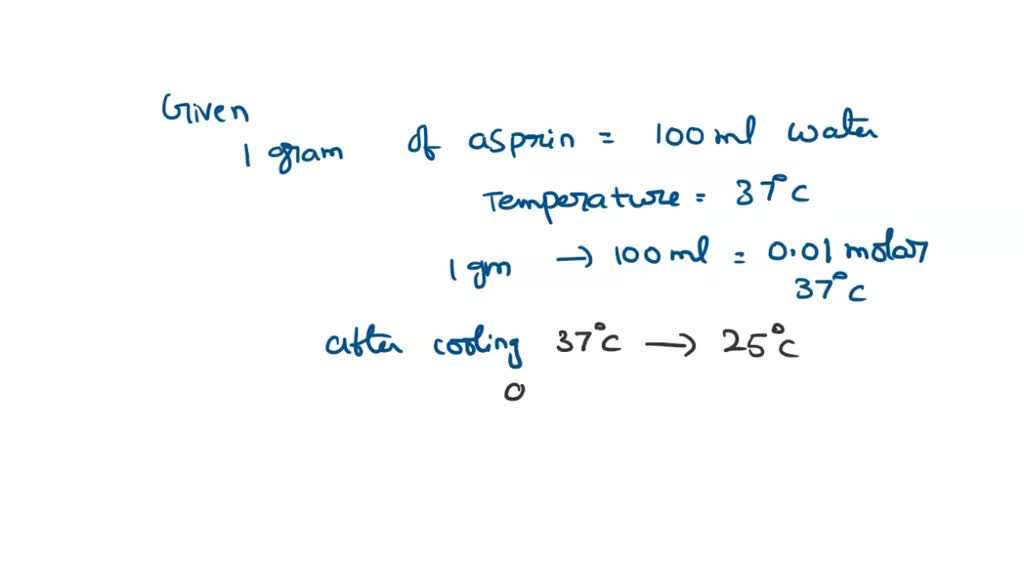 Given
1 gram of asprin = 100ml water
Temperature = 37°c
1 gm → 100ml = 0.01 molar
37°c
after cooling 37°c → 25°c
0